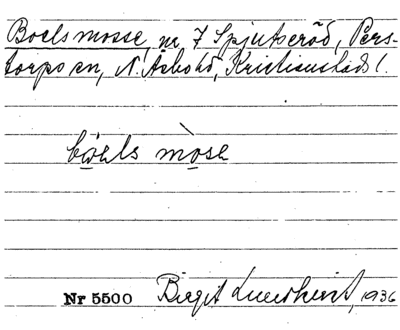 Boelsmosse, nr 7 Spjutseröd, Pers-
torps sn, N. Åsbo hd, Kristianstads l.
bὼels mòse
Nr 5500 Birgit Lundkvist, 1936